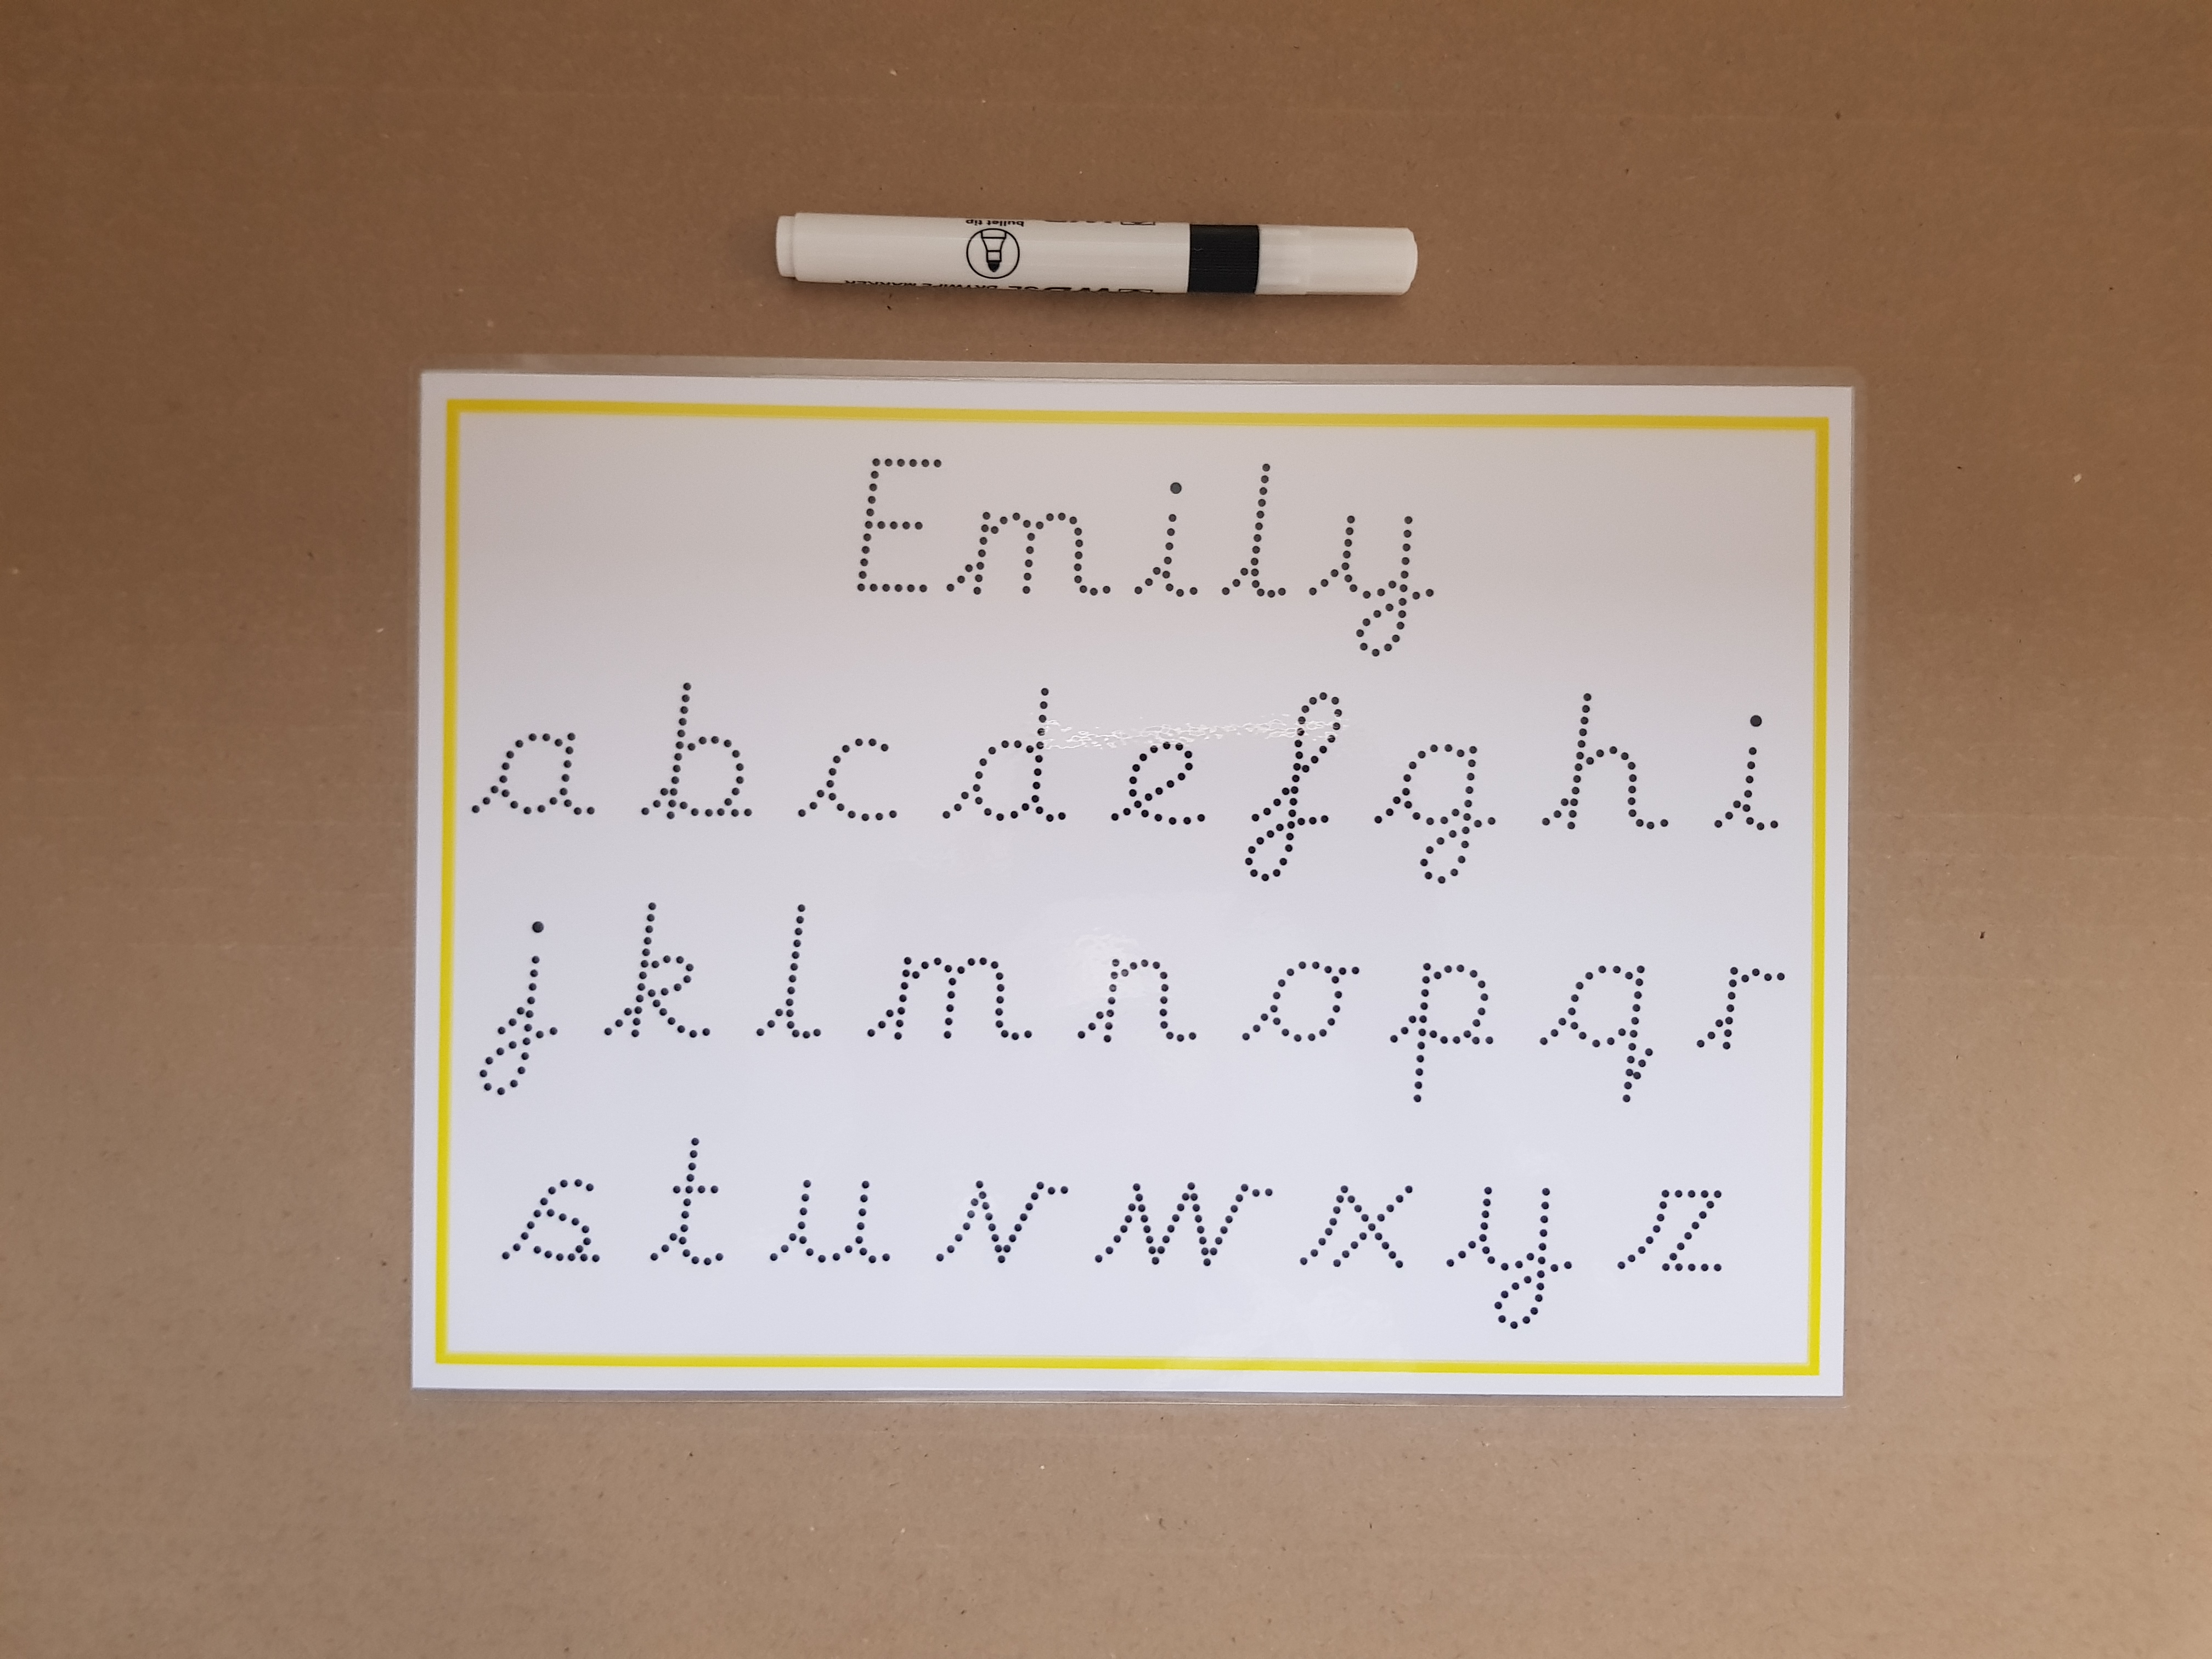 bullet tip
DRYWIPE MARKER
Emily
a b c d e f g h i
j k l m n o p q r
s t u v w x y z